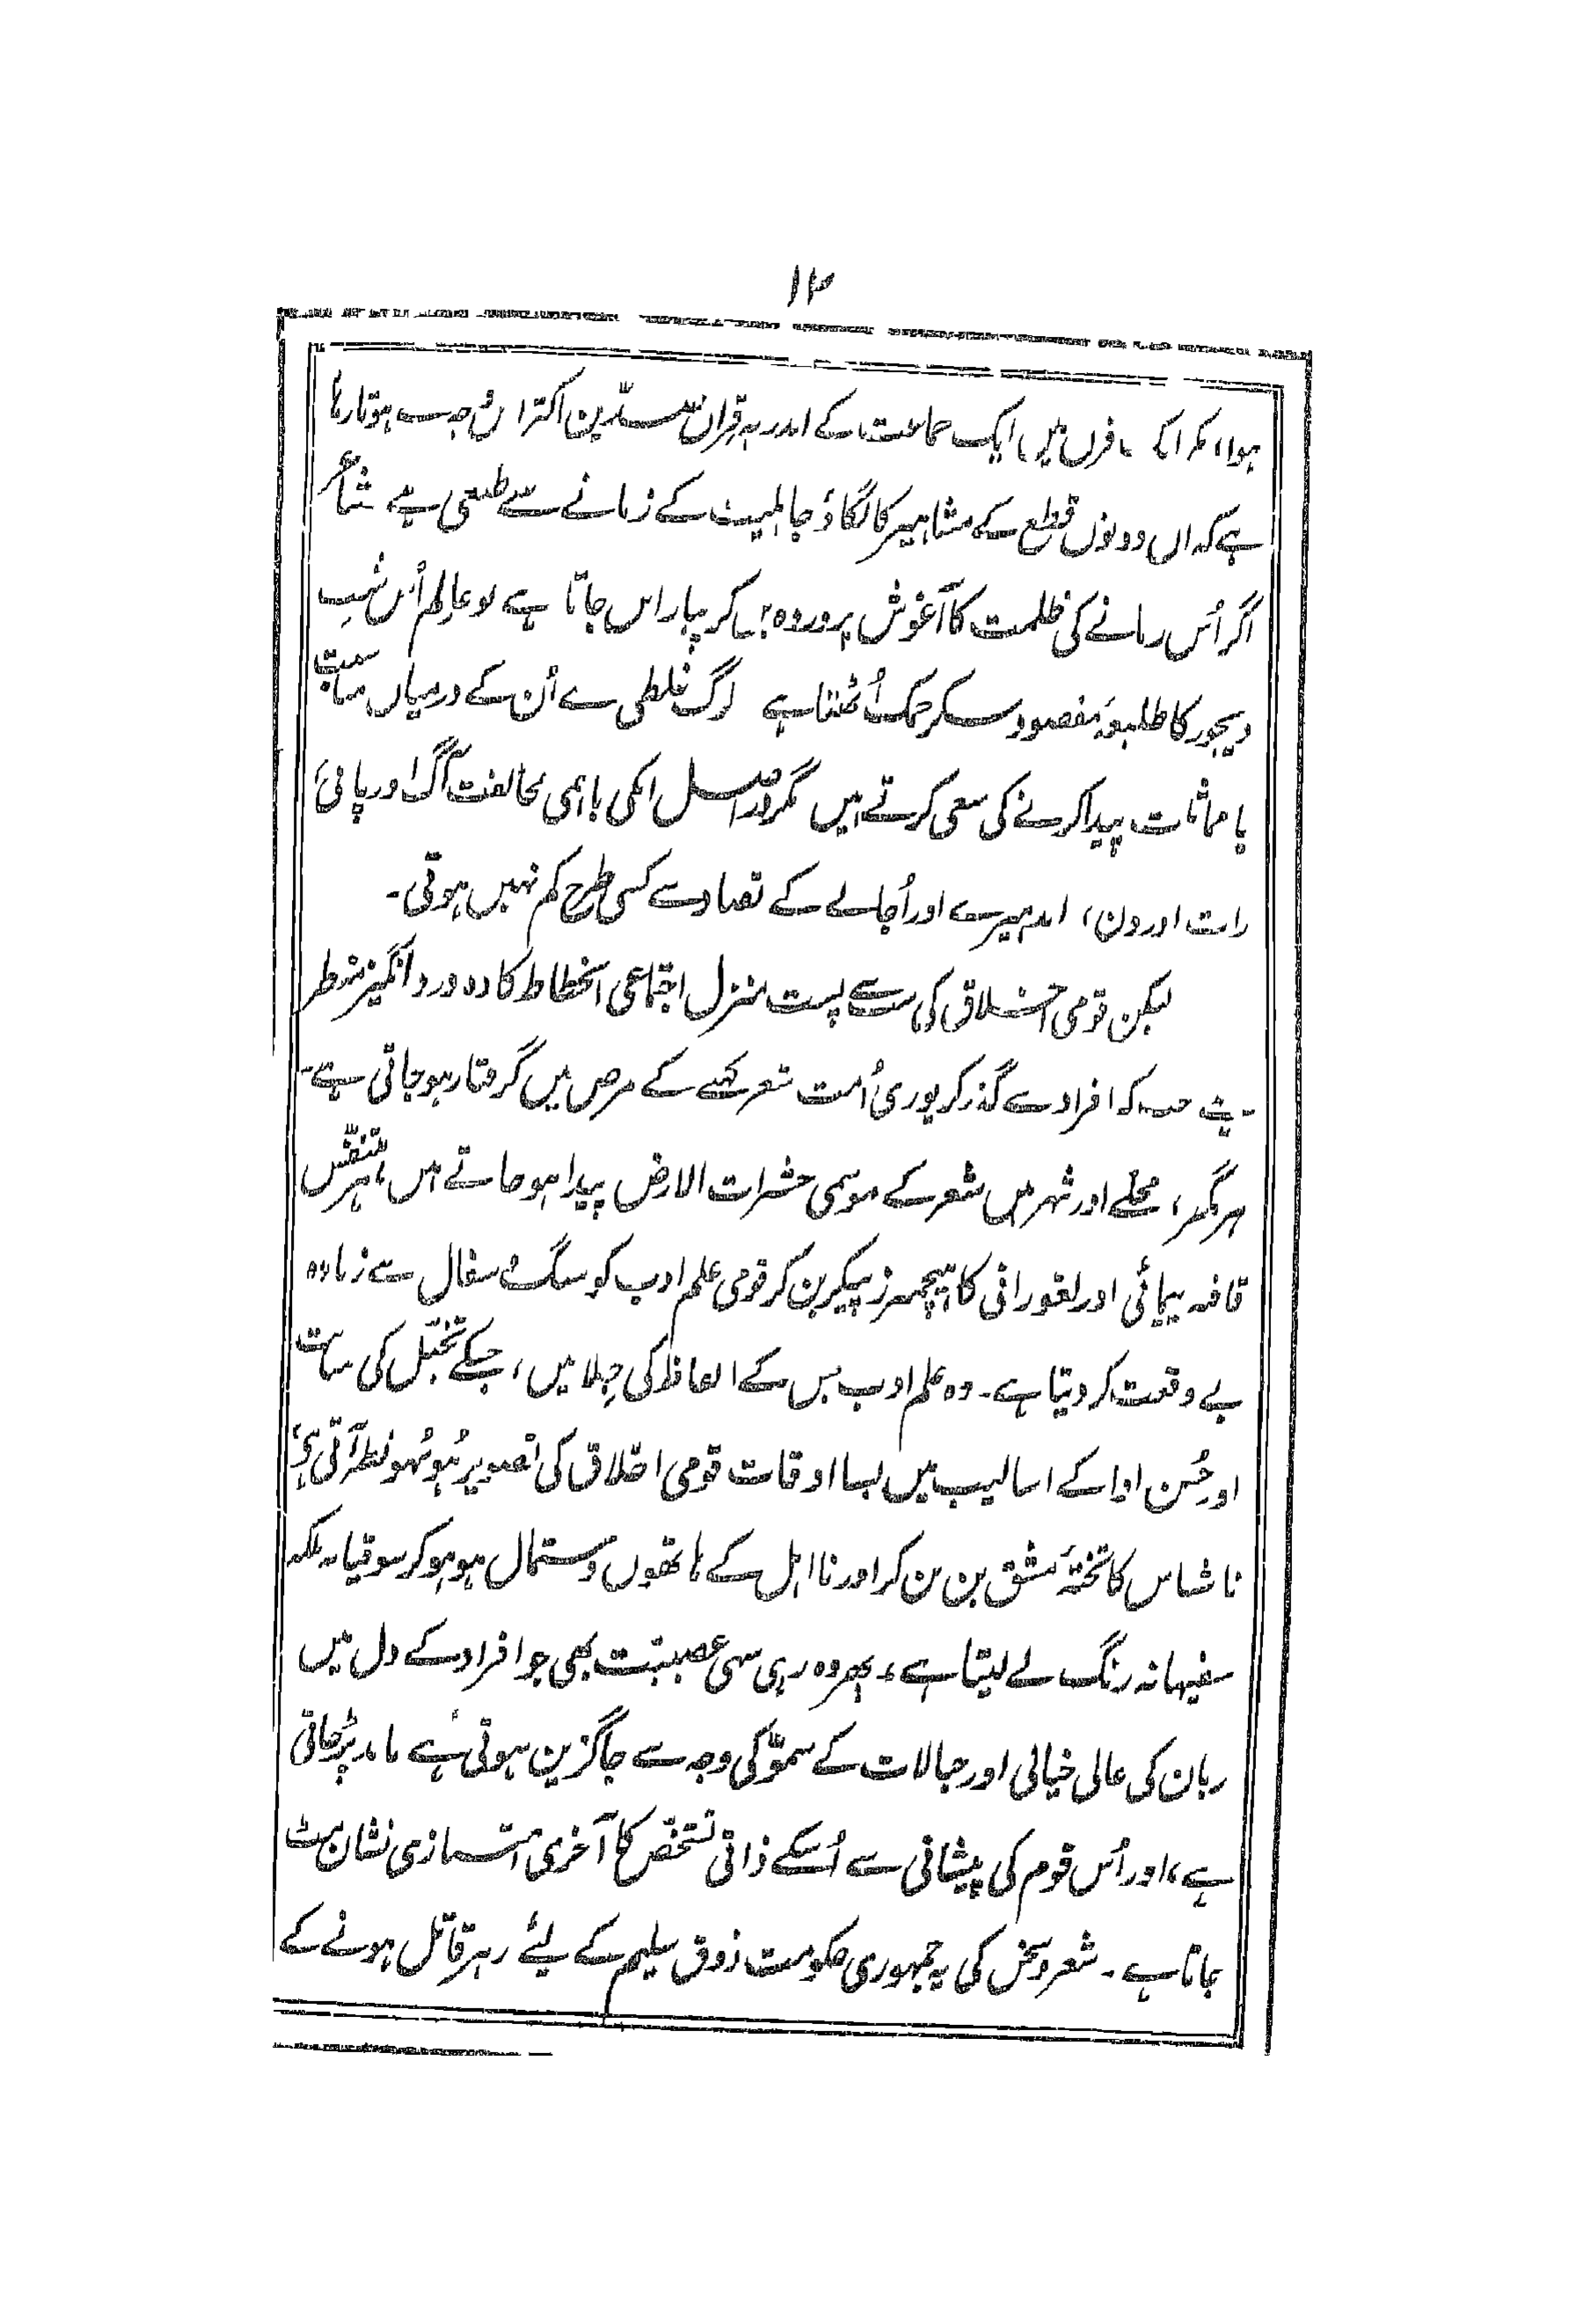 ۱۲
ہوا، مگر ایک فرد میں، ایک جماعت کے اندر یہ قران السعدین اکثر اس وجہ سے ہوتا رہا
ہے کہ ان دونوں قطع کے مشاہیر کا لگاؤ جاہلیت کے زمانے سے طبعی ہے، شاعر
اگر اُس زمانے کی ظلمت کا آغوش پروردہ ہو کر پیارا بن جاتا ہے تو عالِم اُس شبِ
دیجور کا طلیعۂ مقصود بنکر چمک اُٹھتا ہے لوگ غلطی سے اُن کے درمیان مناسبت
یا مماثلت پیدا کرنے کی سعی کرتے ہیں مگر دراصل انکی باہمی مخالفت آگ اور پانی،
رات اور دن، اندھیرے اور اُجالے کے تضاد سے کسی طرح کم نہیں ہوتی۔
لیکن قومی اخلاق کی سب سے پست منزل اجتماعی انحطاط کا وہ درد انگیز منظر
ہے جب کہ افراد سے گذر کر پوری اُمت شعر کہنے کے مرض میں گرفتار ہو جاتی ہے۔
ہر گھر، محلے اور شہر میں شعر کے موسمی حشرات الارض پیدا ہو جاتے ہیں، ہر متنفّس
قافیہ پیمائی اور لغو رانی کا ہیچمرز پیکر بن کر قومی علم ادب کو سنگ و سفال سے زیادہ
بے وقعت کر دیتا ہے۔ وہ علم ادب جس کے الفاظ کی جِلا میں، جسکے تخیّل کی متانت
اور حُسن ادا کے اسالیب میں بسا اوقات قومی اخلاق کی تصویر ہُو بہُو نظر آتی ہے،
ناشناس کا تختۂ مشق بن بن کر اور نا اہل کے ہاتھوں دستمال ہو ہو کر سوقیانہ بلکہ
سفیہانہ رنگ لے لیتا ہے، پھر وہ رہی سہی عصبیّت بھی جو افراد کے دل میں
زبان کی عالی خیالی اور خیالات کے سموّ کی وجہ سے جاگزین ہوتی ہے ماند پڑ جاتی
ہے، اور اُس قوم کی پیشانی سے اُسکے ذاتی تشخّص کا آخری امتیازی نشان مٹ
جاتا ہے۔ شعر و سخن کی یہ جمہوری حکومت ذوق سلیم کے لیئے زہر قاتل ہونے کے